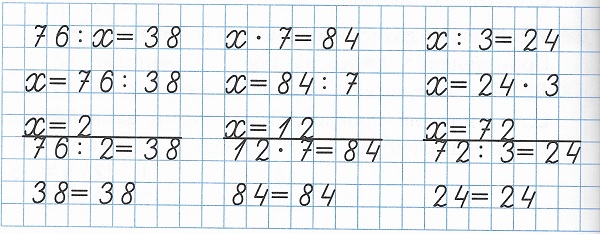 76 : x = 38
x = 76 : 38
x = 2
76 : 2 = 38
38 = 38
x · 7 = 84
x = 84 : 7
x = 12
12 · 7 = 84
84 = 84
x : 3 = 24
x = 24 · 3
x = 72
72 : 3 = 24
24 = 24